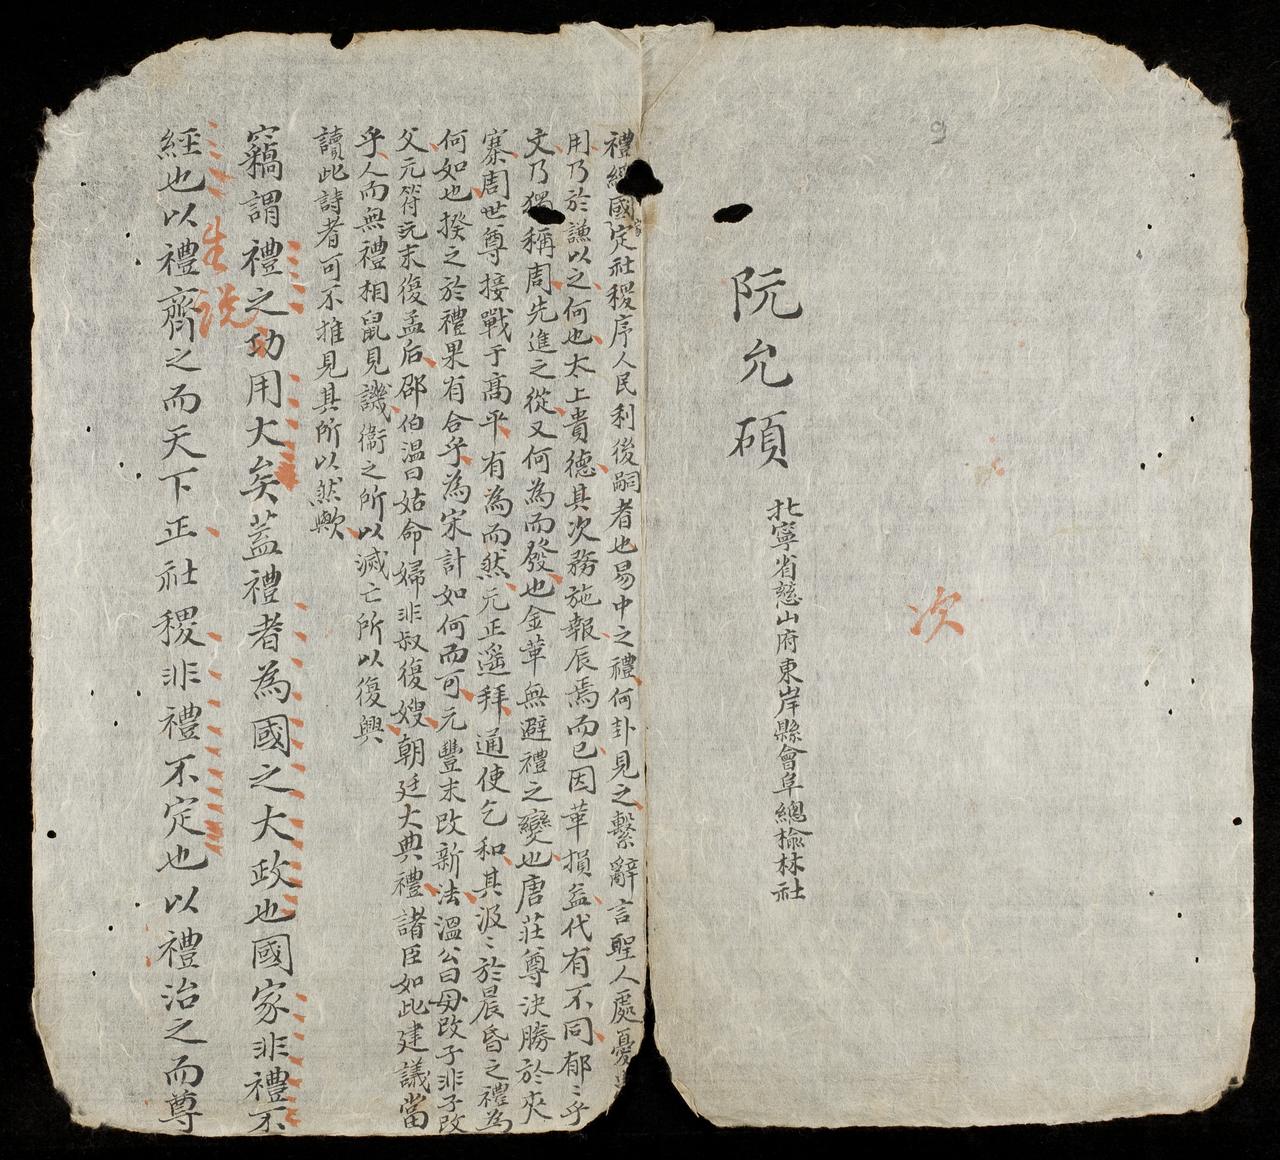 阮允碩
北寧省慈山府東岸縣會阜總榆林社
次
禮經國定社稷序人民利後嗣者也易中之禮何卦見之繫辭言聖人處憂
用乃於謙以之何也太上貴德其次務施報辰焉而已因革損益代有不同郁〻乎
文乃獨稱周先進之從又何為而發也金革無避禮之變也唐莊尊決勝於夾
寨周世尊接戰于高平有為而然元正遙拜通使乞和其汲〻於晨昏之禮為
何如也揆之於禮果有合乎為宋計如何而可元豐末改新法溫公曰毋改子非子改
父元符末復孟后邵伯溫曰姑命婦非叔復嫂朝廷大典禮諸臣如此建議當
乎人而無禮相鼠見譏衞之所以滅亡所以復興
讀此詩者可不推見其所以然歟
竊謂禮之功用大矣蓋禮者為國之大政也國家非禮不
生説
經也以禮齊之而天下正社稷非禮不定也以禮治之而尊